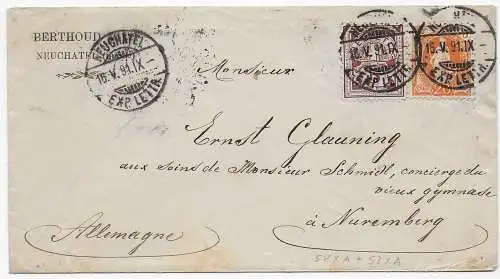 BERTHOUD
NEUCHATEL
NEUCHATEL
16.V.91.IX
EXP. LETTR.
16.V.91.IX
EXP. LETTR.
Monsieur
Ernst Glauning
aux soins de Monsieur Schmidt, concierge du
vieux gymnase
à Nuremberg
Allemagne
58XA + 52XA